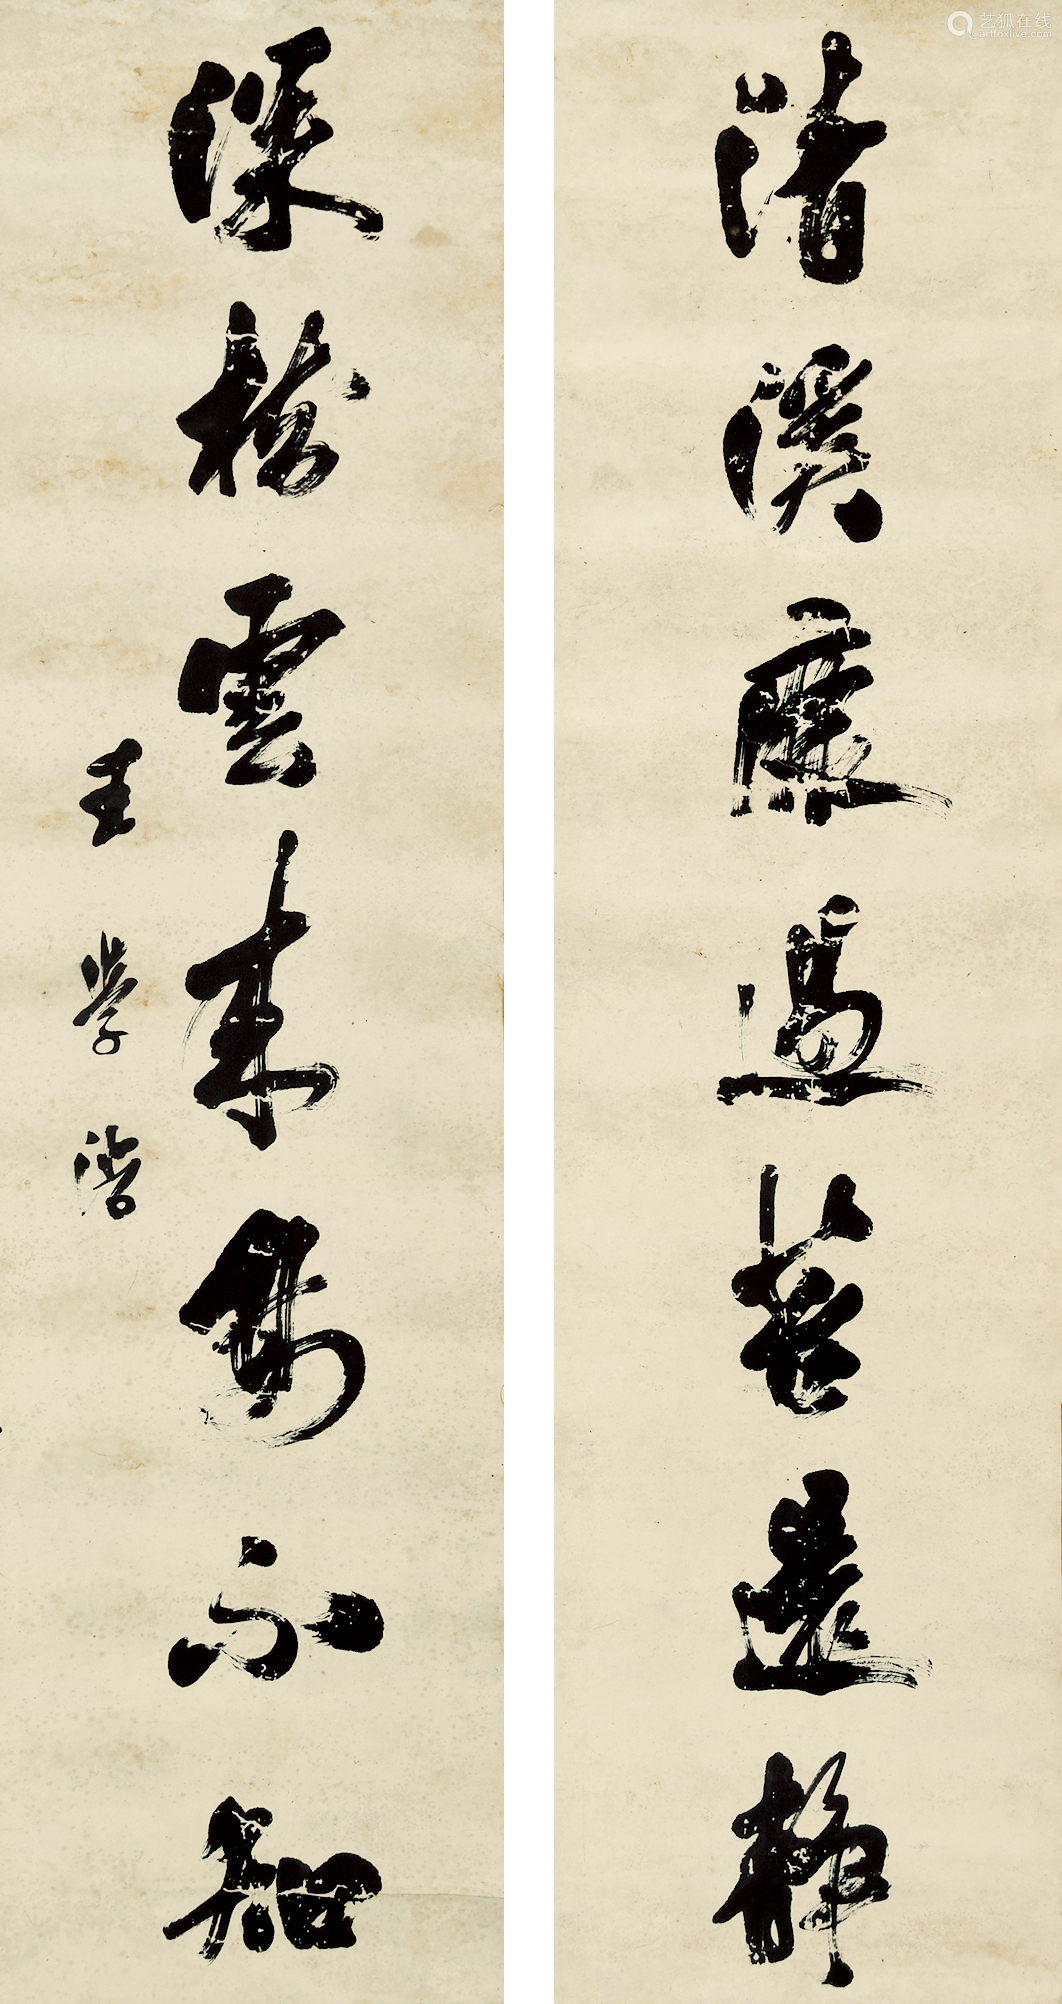 清溪鹿過苔還靜
深樹雲來鳥不知
王學浩
艺狐在线
artfoxlive.com